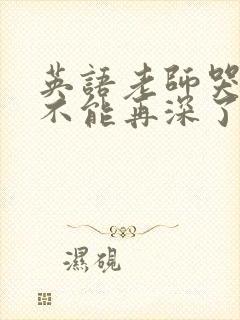 英語老師哭
不能再深了
濕硯